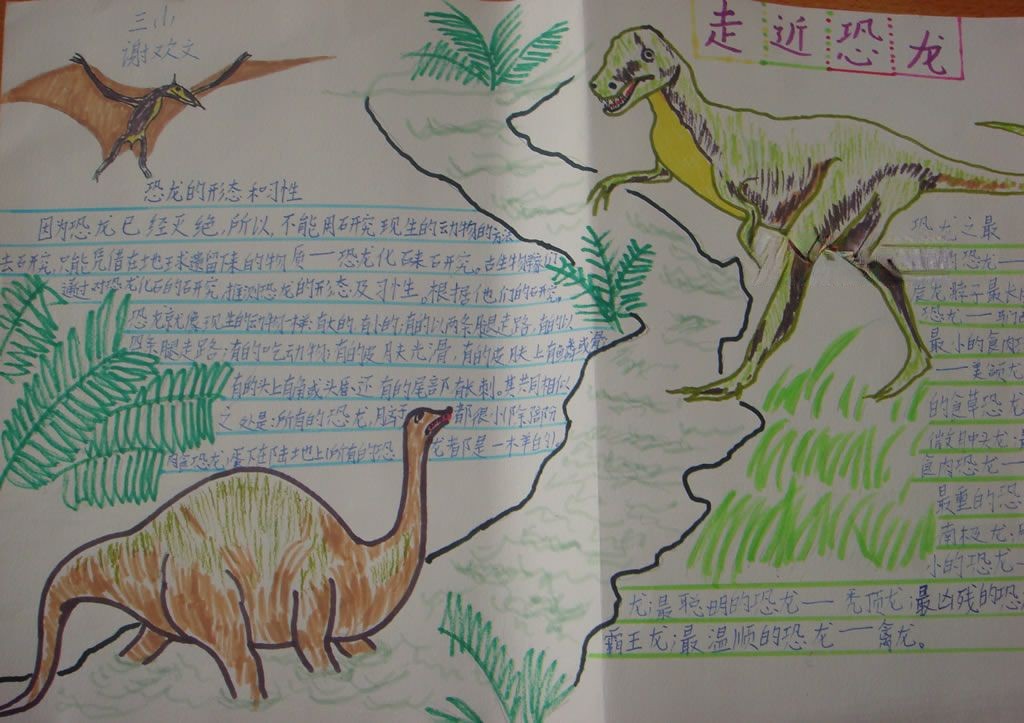 三小
谢欢文
走近恐龙
恐龙的形态和习性
因为恐龙已经灭绝,所以,不能用研究现生的动物的方法
去研究,只能凭借在地球遗留下来的物质——恐龙化石来研究。古生物
通过对恐龙化石的研究,推测恐龙的形态及习性。根据他们的研究,
恐龙就像现生的动物一样:有大的,有小的;有的以两条腿走路,有的以
四条腿走路;有的吃动物;有的皮肤光滑,有的皮肤上有鳞或
有的头上有角或头盾,还有的尾部有长刺。其共同相似
之处是:所有的恐龙,都很小
肉食恐龙,蛋下在陆地上;所有的恐龙都是一木羊白勺
恐龙之最
的恐龙——
龙,脖子最长
恐龙——马门
最小的食肉
——美颌龙
的食草恐龙
食肉恐龙——
最重的恐
南极龙,
小的恐龙—
龙最聪明的恐龙——秃顶龙最凶残的恐
霸王龙最温顺的恐龙——禽龙。